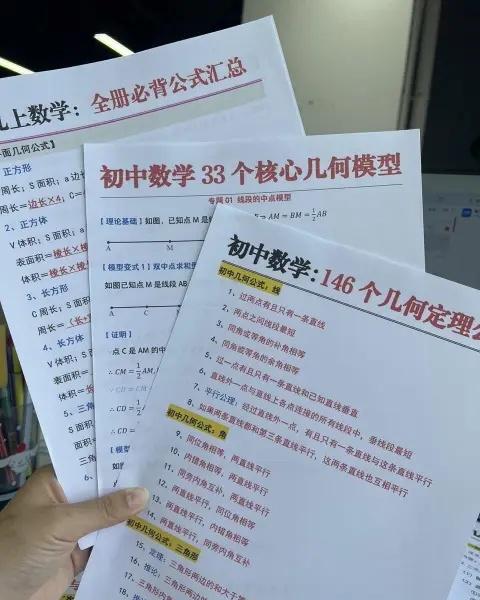 上数学：全册必背公式汇总
面几何公式】
正方形
周长；S 面积；a 边
周长＝边长×4；C＝
2、正方体
V 体积；S 面积；a
表面积＝棱长×棱
体积＝棱长×棱
3、长方形
C 周长；S 面积
周长＝（长+
4、长方体
V 体积；S
表面积＝
体积＝长
5、三角
S 面积
面积＝
三角
6、
初中数学 33 个核心几何模型
专题 01 线段的中点模型
【理论基础】如图，已知点 M 是
AM = BM = 1/2 AB
A M
【模型变式 1】双中点求和型
如图已知点 M 是线段 AB
A C M
【证明】
点 C 是 AM 的中
∴ CM = 1/2 AM,
∴ CD = CM
∴ CD = 1/2
∴ CD =
【模型
如图
初中数学：146 个几何定理公
初中几何公式：线
1、过两点有且只有一条直线
2、两点之间线段最短
3、同角或等角的补角相等
4、同角或等角的余角相等
5、过一点有且只有一条直线和已知直线垂直
6、直线外一点与直线上各点连接的所有线段中，垂线段最短
7、平行公理：经过直线外一点，有且只有一条直线与这条直线平行
8、如果两条直线都和第三条直线平行，这两条直线也互相平行
初中几何公式：角
9、同位角相等，两直线平行
10、内错角相等，两直线平行
11、同旁内角互补，两直线平行
12、两直线平行，同位角相等
13、两直线平行，内错角相等
14、两直线平行，同旁内角互补
初中几何公式：三角形
15、定理：三角形两边的和大于第
16、推论：三角形两边的
17、三角形内
18、推